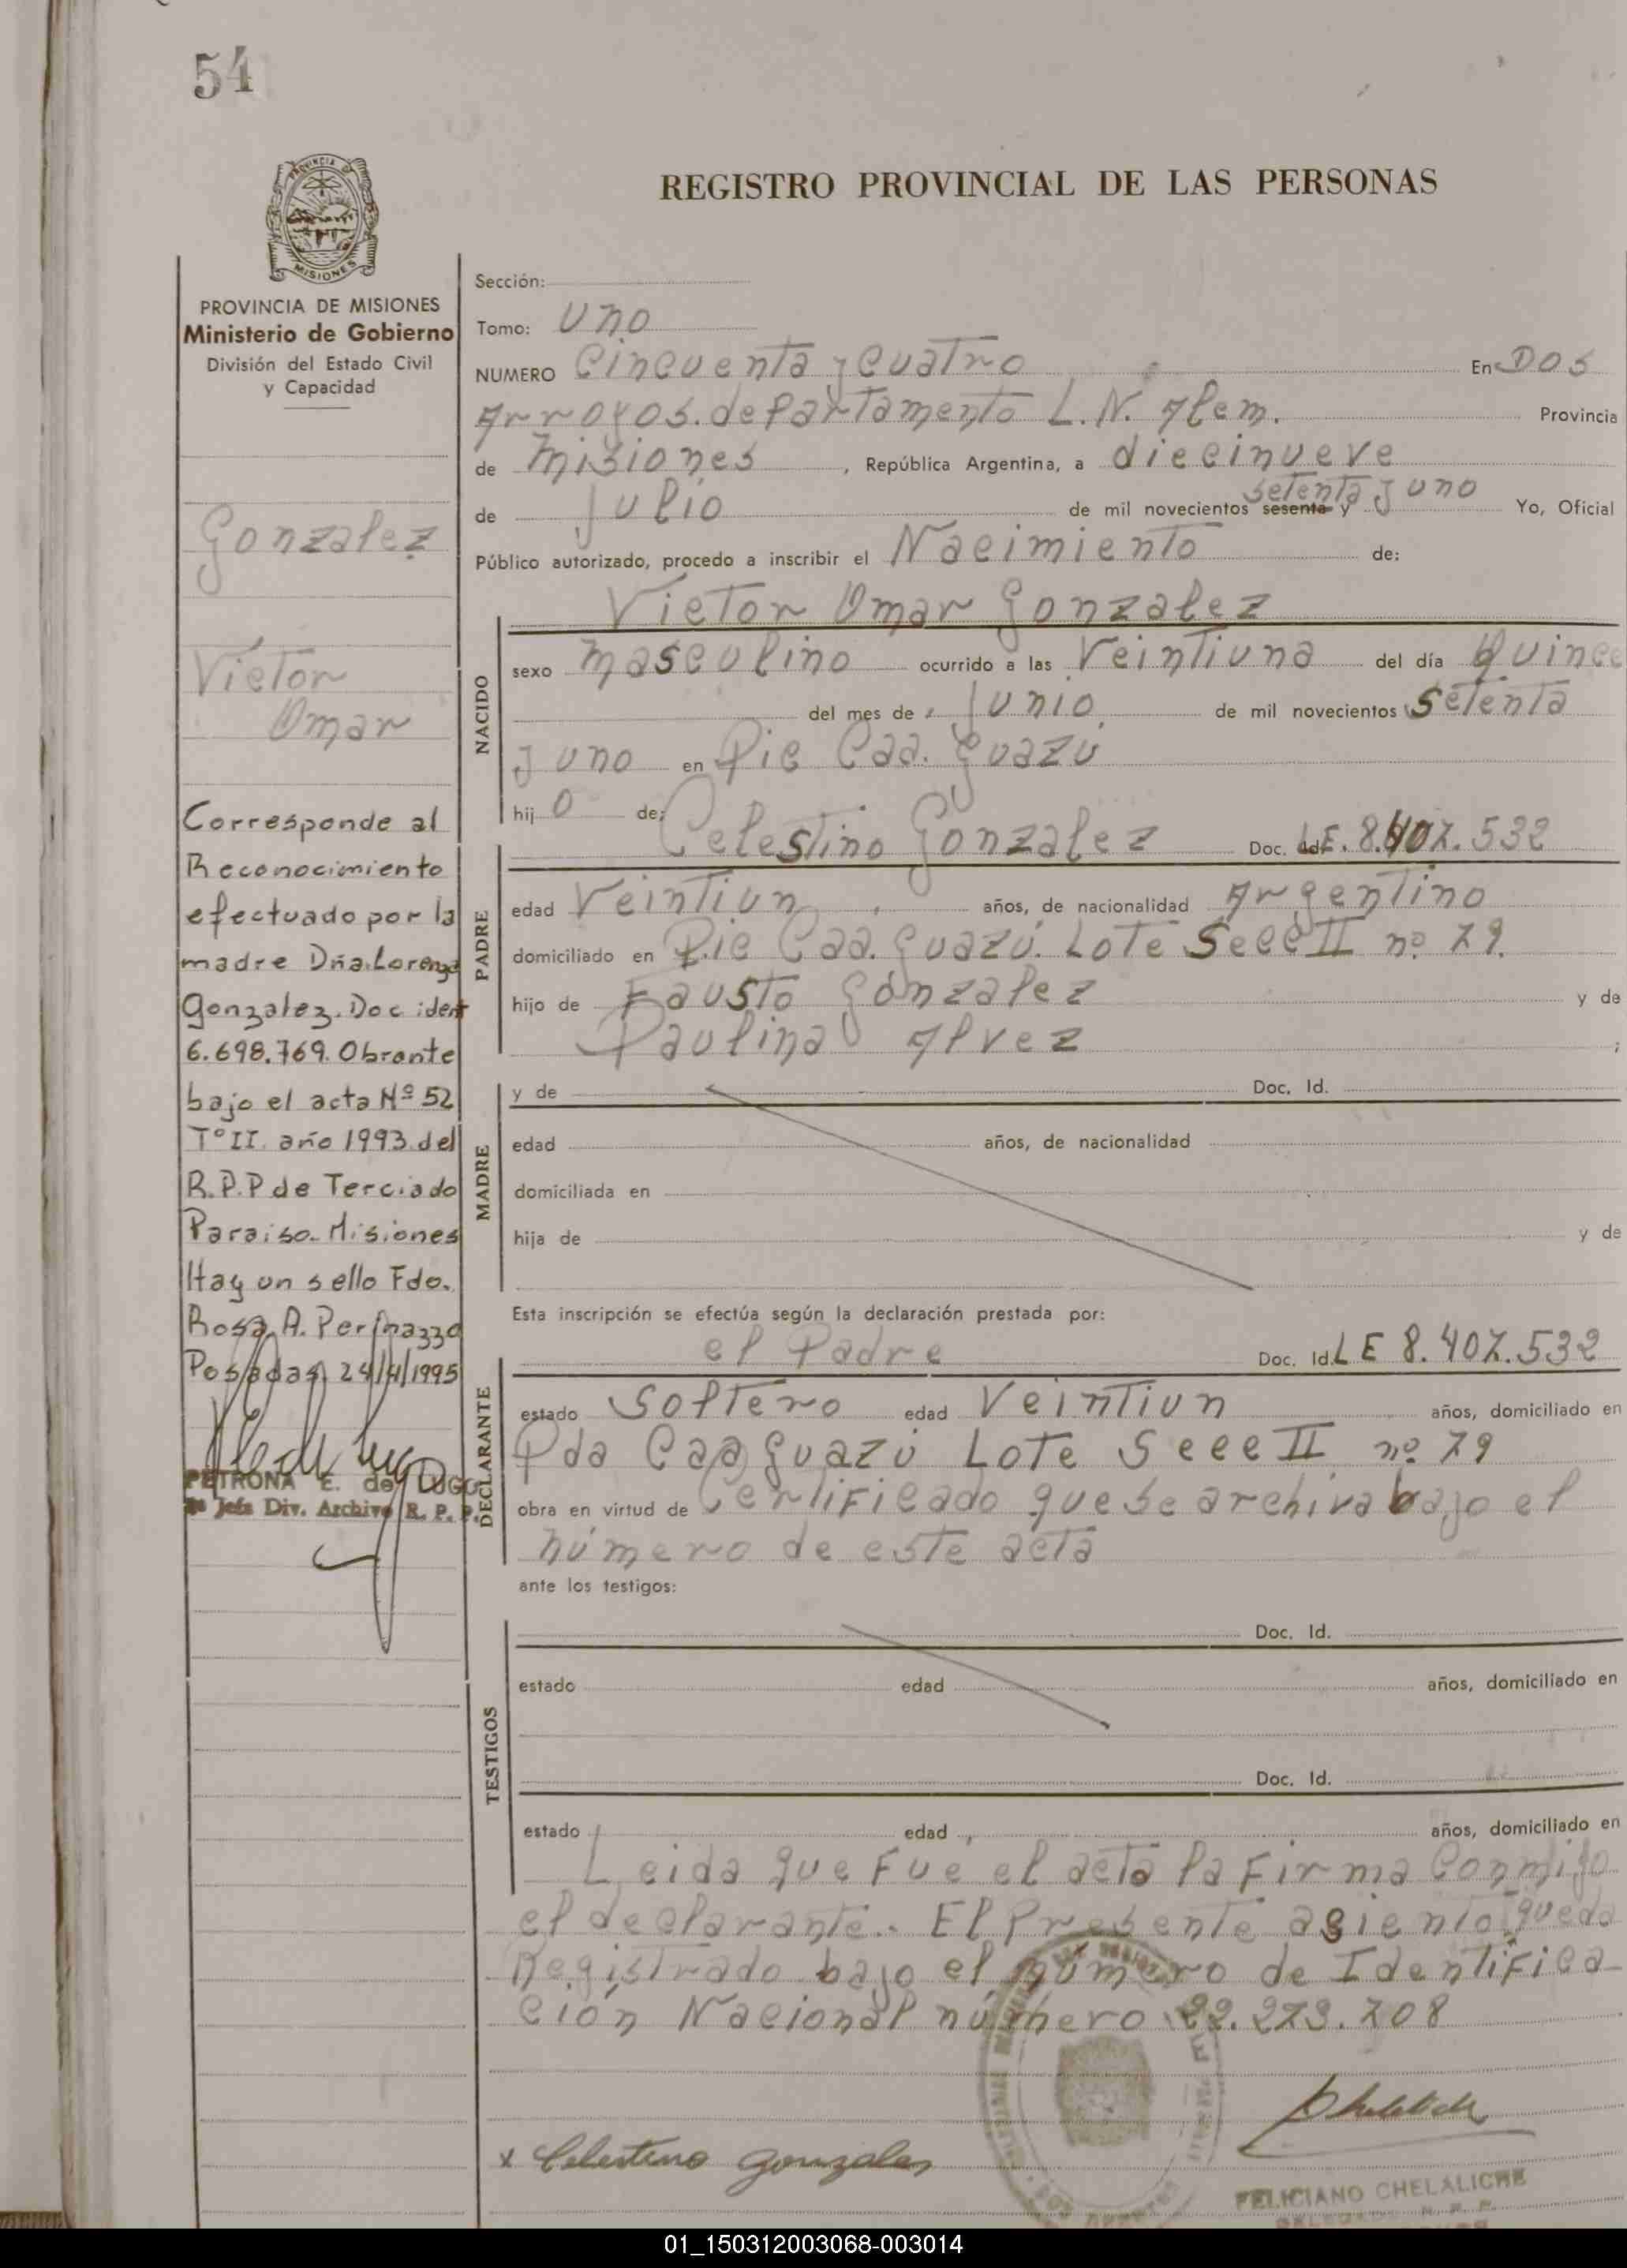 54
PROVINCIA DE
MISIONES
REGISTRO PROVINCIAL DE LAS PERSONAS
PROVINCIA DE MISIONES
Ministerio de Gobierno
División del Estado Civil
y Capacidad
Gonzalez
Victor
Omar
Corresponde al
Reconocimiento
efectuado por la
madre Dña. Lorenza
Gonzalez. Doc ident
6.698.769. Obrante
bajo el acta Nº 52
Tº II. año 1993 del
R.P.P de Terciado
Paraiso. Misiones
Hay un sello Fdo.
Rosa A. Perinazzo
Posadas 24/4/1995
PETRONA E. de LUGO
Jefa Div. Archivo R. P. P.
Sección:
Tomo: Uno
NUMERO Cincuenta y Cuatro En Dos
Arroyos. departamento L.N. Alem. Provincia
de Misiones, República Argentina, a diecinueve
de Julio de mil novecientos sesenta y setenta y uno Yo, Oficial
Público autorizado, procedo a inscribir el Nacimiento de:
Victor Omar Gonzalez
NACIDO
sexo masculino ocurrido a las Veintiuna del día Quince
del mes de Junio de mil novecientos setenta
y uno en Pic Caa. Guazú
hijo de: Celestino Gonzalez Doc. Id. LE. 8.407.532
PADRE
edad Veintiun años, de nacionalidad Argentino
domiciliado en Pic Caa. Guazú. Lote Secc II nº 79.
hijo de Fausto Gonzalez y de
Paulina Alvez ;
MADRE
y de Doc. Id.
edad años, de nacionalidad
domiciliada en
hija de y de
Esta inscripción se efectúa según la declaración prestada por:
el Padre Doc. Id. LE 8.407.532
DECLARANTE
estado Soltero edad Veintiun años, domiciliado en
Pda Caa Guazú Lote Secc II nº 79
obra en virtud de Certificado que se archiva bajo el
número de este acta
ante los testigos:
TESTIGOS
Doc. Id.
estado edad años, domiciliado en
Doc. Id.
estado edad años, domiciliado en
Leida que fue el acta la firma Conmigo
el declarante. El Presente asiento queda
Registrado bajo el número de Identifica-
ción Nacional número 22.273.708
x Celestino Gonzales
FELICIANO CHELALICHE
01_150312003068-003014